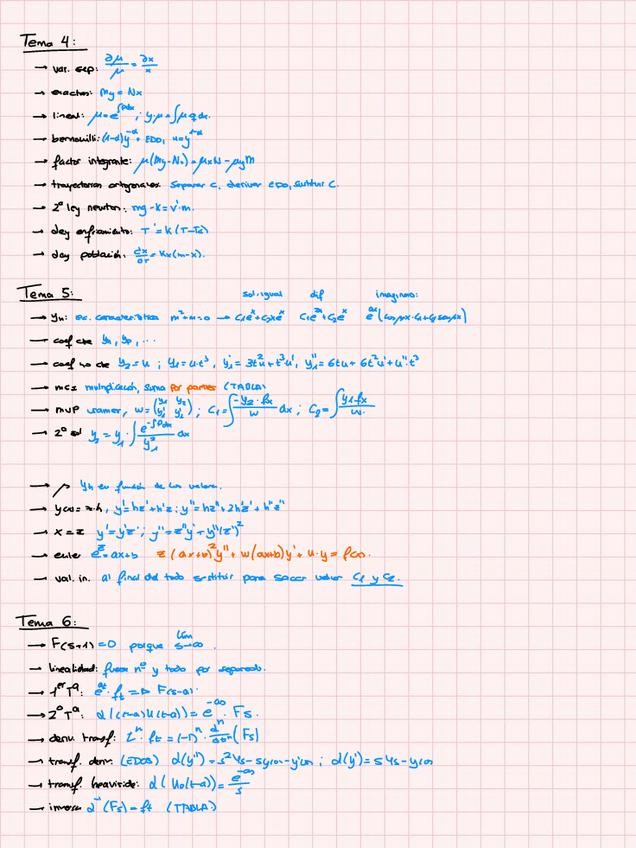 Tema 4:
→ var. sep: ∂μ/μ = ∂x/x
→ exactas: My = Nx
→ lineal: μ = e^∫pdx ; y·μ = ∫μ q dx.
→ bernouilli: (1-α)y^-α · EDO, u = y^1-α
→ factor integrante: μ(My - Nx) = μxN - μyM
→ trayectorias ortogonales: separar C, derivar EDO, sustituir C.
→ 2º ley newton: mg - k = v'·m.
→ ley enfriamiento: T' = k(T-Ta)
→ ley población: dx/dt = kx(m-x).
Tema 5:
sol. igual dif imaginario:
→ yh: ec. característica m²+m=0 → c1e^x + c2xe^x c1e^2x + c2e^x e^αx(cosβx·c1 + c2 senβx)
→ coef cte yh, yp, ...
→ coef no cte y2 = u ; y1 = u·t³, y1' = 3t²u + t³u', y1'' = 6tu + 6t²u' + u''t³
→ mci multiplicación, suma por partes (TABLA)
→ mvp cramer, w = (y1 y2 y1' y2') ; C1 = ∫ -y2·fx/w dx ; C2 = ∫ y1·fx/w
→ 2º sol y2 = y1·∫ e^-∫pdx/y1² dx
→ yh en función de los valores.
→ y(x) = z·h, y' = hz' + h'z ; y'' = hz'' + 2h'z' + h''z
→ x = z y' = y'z' ; y'' = z''y' + y''(z')²
→ euler e^z = ax+b z(ax+b)²y'' + w(ax+b)y' + u·y = f(x).
→ val. in. al final del todo sustituir para sacar valor C1 y C2.
Tema 6:
→ F(s+1) = 0 porque lim s→∞.
→ linealidad: fuera nº y todo por separado.
→ 1er Tª: e^at · ft => F(s-a).
→ 2º Tª: L((t-a)U(t-a)) = e^-as · Fs.
→ deriv transf: t^n · ft = (-1)^n · d^n/ds^n (Fs)
→ transf. deriv: (EDOS) L(y'') = s²Ys - sy(0) - y'(0) ; L(y') = sYs - y(0)
→ transf heaviside: L(U0(t-a)) = e^-as/s
→ inversa L^-1(Fs) = ft (TABLA)